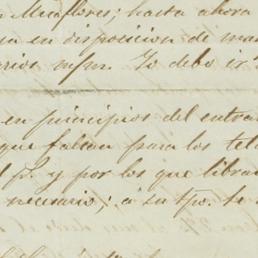 Miraflores; hasta ahora
en disposicion de man
mpn. Yo debo ir
en principios del entra
que faltan para los tel
d p. y por los que libra
necesario; a su tpo. te